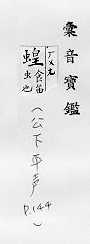 彙音寶鑑
ㄏㄨㄤ
蝗 食苗虫也
(公下平声
P.144)